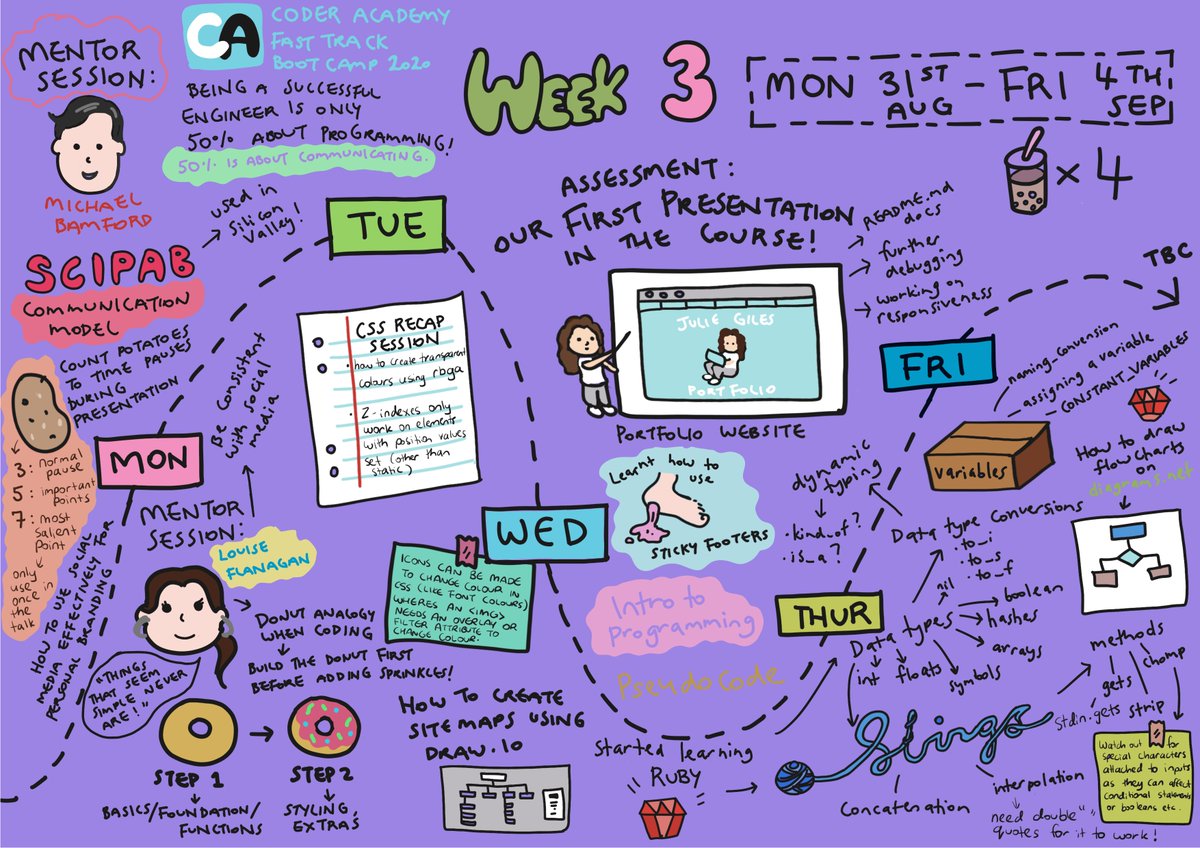 MENTOR
SESSION:
MICHAEL
BAMFORD
CA
CODER ACADEMY
FAST TRACK
BOOTCAMP 2020
BEING A SUCCESSFUL
ENGINEER IS ONLY
50% ABOUT PROGRAMMING!
50% IS ABOUT COMMUNICATING.
WEEK 3
MON 31ST AUG - FRI 4TH SEP
× 4
SCIPAB
COMMUNICATION
MODEL
used in
Silicon
Valley!
COUNT POTATOES
TO TIME PAUSES
DURING
PRESENTATION
3: normal
pause
5: important
points
7: most
salient
point
only
use
once in
the
talk
MON
HOW TO USE SOCIAL
MEDIA EFFECTIVELY FOR
PERSONAL BRANDING
MENTOR
SESSION:
LOUISE
FLANAGAN
Be consistent
with social
media
"THINGS
THAT SEEM
SIMPLE NEVER
ARE!"
DONUT ANALOGY
WHEN CODING
BUILD THE DONUT FIRST
BEFORE ADDING SPRINKLES!
STEP 1
BASICS/FOUNDATION/
FUNCTIONS
STEP 2
STYLING,
EXTRAS
TUE
CSS RECAP
SESSION
• how to create transparent
colours using rbga
• Z-indexes only
work on elements
with position values
set (other than
static)
HOW TO CREATE
SITEMAPS USING
DRAW.IO
ASSESSMENT:
OUR FIRST PRESENTATION
IN THE COURSE!
README.md
docs
further
debugging
working on
responsiveness
JULIE GILES
PORTFOLIO
PORTFOLIO WEBSITE
WED
ICONS CAN BE MADE
TO CHANGE COLOUR IN
CSS (LIKE FONT COLOURS)
WHERES AN <IMG>
NEEDS AN OVERLAY OR
FILTER ATTRIBUTE TO
CHANGE COLOUR.
Learnt how to
use
STICKY FOOTERS
Intro to
Programming
Pseudocode
Started learning
RUBY
THUR
dynamic
typing
• kind_of?
• is_a?
Data type conversions
• to_i
• to_s
• to_f
Data types
nil
boolean
hashes
arrays
symbols
floats
int
Strings
concatenation
interpolation
need double " "
quotes for it to work!
methods
gets
stdin.gets
strip
chomp
Watch out for
special characters
attached to inputs
as they can affect
conditional statements
or booleans etc.
FRI
TBC
variables
naming_convension
assigning a variable
CONSTANT_VARIABLES
How to draw
flowcharts
on
diagrams.net